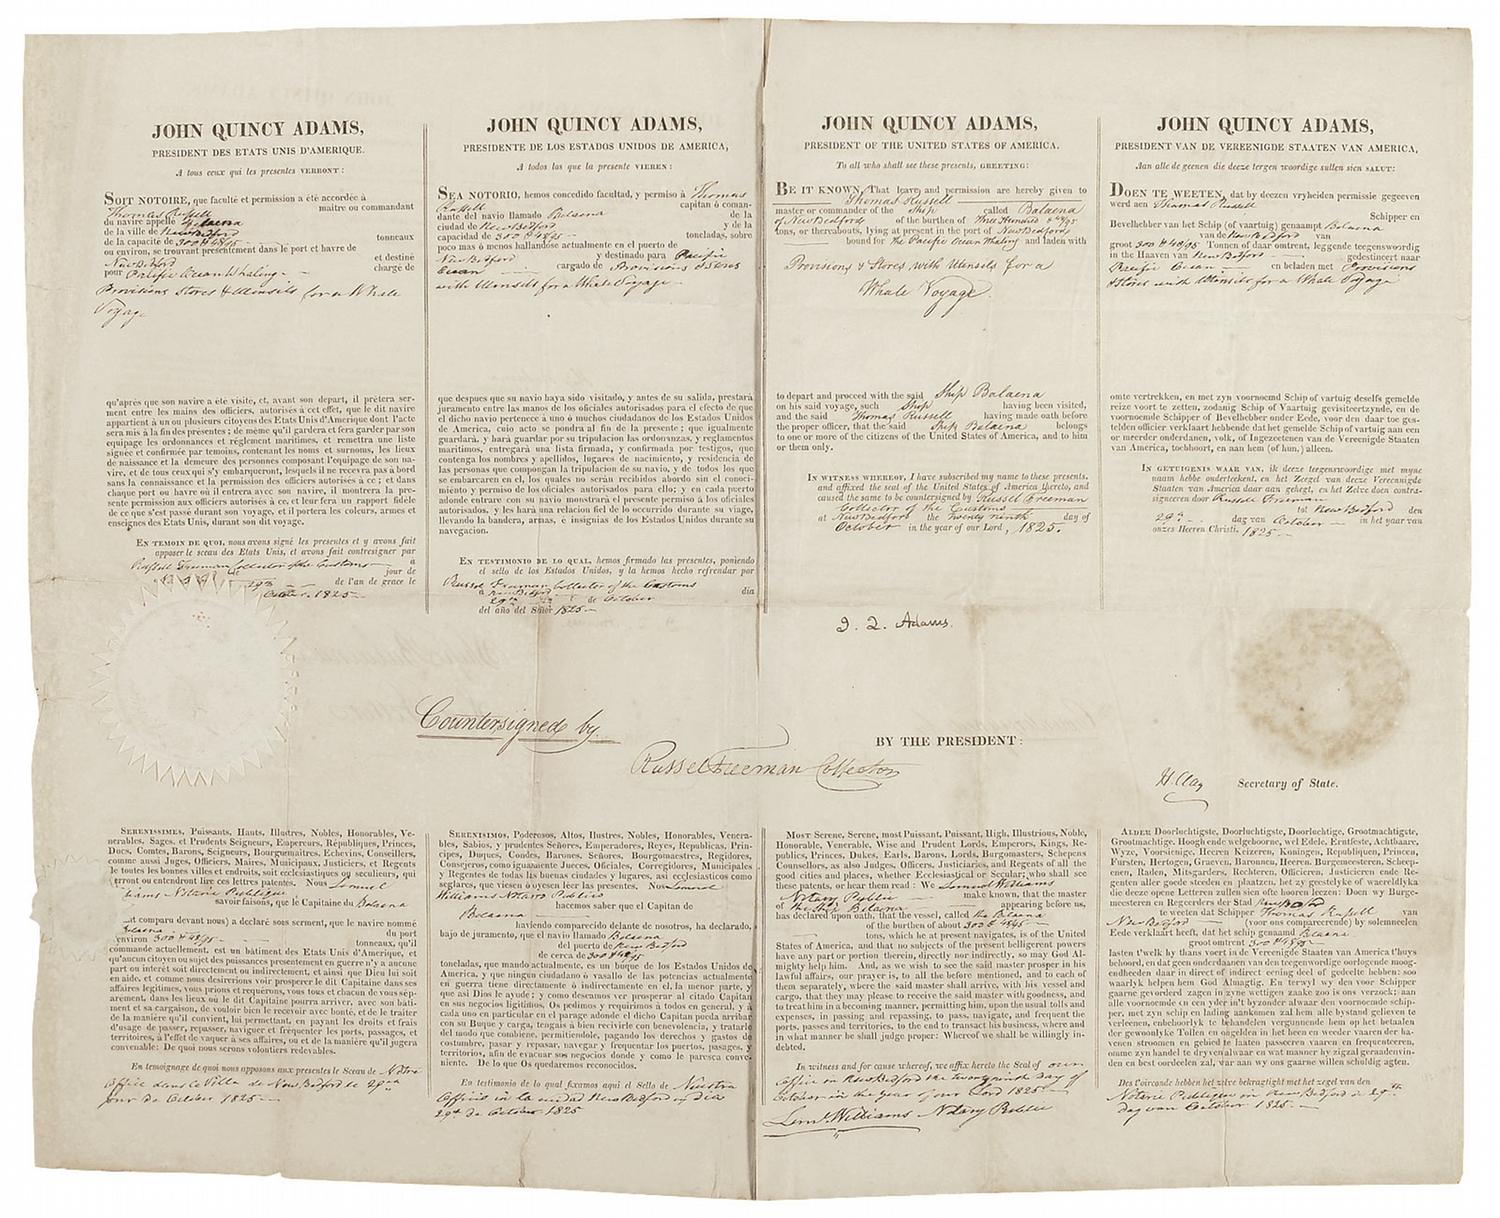 JOHN QUINCY ADAMS,
PRESIDENT DES ETATS UNIS D'AMERIQUE.
A tous ceux qui les presentes VERRONT:
SOIT NOTOIRE, que faculté et permission a été accordée à
Thomas Russell maitre ou commandant
du navire appelle Balaena
de la ville de New Bedford
de la capacité de 300 & 48/95 tonneaux
ou environ, se trouvant presentement dans le port et havre de
New Bedford et destiné
pour Pacific Ocean Whaling chargé de
Provisions Stores & Utensils for a Whale
Voyage
qu'après que son navire a été visite, et, avant son depart, il prétera ser-
ment entre les mains des officiers, autorisés à cet effet, que le dit navire
appartient à un ou plusieurs citoyens des Etats Unis d'Amerique dont l'acte
sera mis à la fin des présentes; de même qu'il gardera et fera garder par son
equipage les ordonances et réglement maritimes, et remettra une liste
signée et confirmée par temoins, contenant les noms et surnoms, les lieux
de naissance et la demeure des personnes composant l'equipage de son na-
vire, et de tous ceux qui s'y embarqueront, lesquels il ne recevra pas à bord
sans la connaissance et la permission des officiers autorisés à ce; et dans
chaque port ou havre où il entrera avec son navire, il montrera la pre-
sente permission aux officiers autorisés à ce, et leur fera un rapport fidèle
de ce que s'est passé durant son voyage, et il portera les coleurs, armes et
enseignes des Etats Unis, durant son dit voyage.
EN TEMOIN DE QUOI, nous avons signé les presentes et y avons fait
apposer le sceau des Etats Unis, et avons fait contresigner par
Russell Freeman Collector of the Customs à
jour de
29th de l'an de grace le
October 1825
JOHN QUINCY ADAMS,
PRESIDENTE DE LOS ESTADOS UNIDOS DE AMERICA,
A todos los que la presente VIEREN:
SEA NOTORIO, hemos concedido facultad, y permiso à Thomas
Russell capitan ó coman-
dante del navio llamado Balaena de la
ciudad de New Bedford y de la
capacidad de 300 & 48/95 toneladas, sobre
poco mas ó menos hallandose actualmente en el puerto de
New Bedford y destinado para Pacific
Ocean cargado de Provisions & Stores
with Utensils for a Whale Voyage
que despues que su navio haya sido visitado, y antes de su salida, prestará
juramento entre las manos de los oficiales autorisados para el efecto de que
el dicho navio pertenece à uno ó muchos ciudadanos de los Estados Unidos
de America, cuio acto se pondra al fin de la presente; que igualmente
guardará, y hará guardar por su tripulacion las ordonanzas, y reglamentos
maritimos, entregará una lista firmada, y confirmada por testigos, que
contenga los nombres y apellidos, lugares de nacimiento, y residencia de
las personas que compongan la tripulacion de su navio, y de todos los que
se embarcaren en el, los quales no serán recibidos abordo sin el conoci-
miento y permiso de los oficiales autorisados para ello; y en cada puerto
adonde entrare con su navio monstrará el presente permiso à los oficiales
autorisados, y les hará una relacion fiel de lo occurrido durante su viage,
llevando la bandera, armas, é insignias de los Estados Unidos durante su
navegacion.
EN TESTIMONIO DE LO QUAL, hemos firmado las presentes, poniendo
el sello de los Estados Unidos, y la hemos hecho refrendar por
Russel Freeman Collector of the Customs
à New Bedford dia
29th de October
del año del Señor 1825
JOHN QUINCY ADAMS,
PRESIDENT OF THE UNITED STATES OF AMERICA.
To all who shall see these presents, GREETING:
BE IT KNOWN, That leave and permission are hereby given to
Thomas Russell
master or commander of the Ship called Balaena
of New Bedford of the burthen of Three Hundred & 48/95
tons, or thereabouts, lying at present in the port of New Bedford
bound for the Pacific Ocean Whaling and laden with
Provisions & Stores with Utensils for a
Whale Voyage.
to depart and proceed with the said Ship Balaena
on his said voyage, such Ship having been visited,
and the said Thomas Russell having made oath before
the proper officer, that the said Ship Balaena belongs
to one or more of the citizens of the United States of America, and to him
or them only.
IN WITNESS WHEREOF, I have subscribed my name to these presents,
and affixed the seal of the United States of America thereto, and
caused the same to be countersigned by Russell Freeman
Collector of the Customs
at New Bedford the Twenty ninth day of
October in the year of our Lord, 1825.
JOHN QUINCY ADAMS,
PRESIDENT VAN DE VEREENIGDE STAATEN VAN AMERICA,
Aan alle de geenen die deeze tergen woordige sullen sien SALUT:
DOEN TE WEETEN, dat by deezen vryheiden permissie gegeeven
werd aen Thomas Russell
Schipper en
Bevelhebber van het Schip (of vaartuig) genaampt Balaena
van de New Bedford van
groot 300 & 48/95 Tonnen of daar omtrent, leggende teegenswoordig
in the Haaven van New Bedford gedestineert naar
Pacific Ocean en beladen met Provisions
& Stores with Utensils for a Whale Voyage
omte vertrekken, en met zyn voornoemd Schip of Vaartuig deselfs gemelde
reize voort te zetten, zodanig Schip of Vaartuig gevisiteertzynde, en de
voornoemde Schipper of Bevelhebber onder Eede, voor den daar toe ges-
telden officier verklaart hebbende dat het gemelde Schip of vartuig aan een
or meerder onderdanen, volk, of Ingezeetenen van de Vereenigde Staaten
van America, tochhoort, en aan hem (of hun,) alleen.
IN GETUIGENIS WAAR VAN, ik deeze tergenswoordige met myne
naam hebbe onderteekent, en het Zeegel van deeze Vereenigde
Staaten van America daar aan gehegt, en het Zelve doen contra-
signeeren door Russell Freeman
tot New Bedford den
29th dag van October in het year van
onzes Heeren Christi. 1825
J. Q. Adams.
Countersigned by
Russel Freeman Collector
BY THE PRESIDENT:
H. Clay Secretary of State.
SERENISSIMES, Puissants, Hauts, Illustres, Nobles, Honorables, Ve-
nerables, Sages, et Prudents Seigneurs, Empereurs, Républiques, Princes,
Ducs, Comtes, Barons, Seigneurs, Bourguemaitres, Echevins, Conseillers,
comme aussi Juges, Officiers, Maires, Municipaux, Justiciers, et Regents
de toutes les bonnes villes et endroits, soit ecclesiastiques ou seculieurs, qui
verront ou entendront lire ces lettres patentes. Nous Lemuel
Williams Notarie Publique
savoir faisons, que le Capitaine du Balaena
comparu devant nous) a déclaré sous serment, que le navire nommé
Balaena du port
environ 300 & 48/95 tonneaux, qu'il
commande actuellement, est un bâtiment des Etats Unis d'Amerique, et
qu'aucun citoyen ou sujet des puissances presentement en guerre n'y a aucune
part ou intérêt soit directement ou indirectement, et ainsi que Dieu lui soit
en aide, et comme nous desirerions voir prosperer le dit Capitaine dans ses
affaires legitimes, vous prions et requérons, vous tous et chacun de vous sép-
arement, dans les lieux où le dit Capitaine pourra arriver, avec son bâti-
ment et sa cargaison, de vouloir bien le recevoir avec bonté, et de le traiter
de la manière qu'il convient, lui permettant, en payant les droits et frais
d'usage de passer, repasser, naviguer et fréquenter les ports, passages, et
territoires, à l'effet de vaquer à ses affaires, ou et de la manière qu'il jugera
convenable: De quoi nous serons volontiers redevables.
En temoignage de quoi nous apposons aux presentes le Sceau de Nôtre
Office dans le Villa de New Bedford le 29me
Jour de October 1825
SERENISIMOS, Poderosos, Altos, Ilustres, Nobles, Honorables, Venera-
bles, Sabios, y prudentes Señores, Emperadores, Reyes, Republicas, Prin-
cipes, Duques, Condes, Barones, Señores, Bourgomaestres, Regidores,
Consejeros, como igualmente Jueces, Oficiales, Corregidores, Municipales
y Regentes de todas las buenas ciudades y lugares, asi ecclesiasticos como
seglares, que viesen ó oyesen léer las presentes. Nos Lemuel
Williams Notario Publico
hacemos saber que el Capitan de
Balaena
haviendo comparecido delante de nosotros, ha declarado,
bajo de juramento, que el navio llamado Balaena
del puerto de New Bedford
de cerca de 300 & 48/95
toneladas, que mando actualmente, es un buque de los Estados Unidos de
America, y que ningun ciudadano ó vasallo de las potencias actualmente
en guerra tiene directamente ó indirectamente en el, la menor parte, y
que asi Dios le ayude; y como deseamos ver prosperar al citado Capitan
en sus negocios licitos, Os pedimos y requirimos à todos en general, y à
cada uno en particular en el parage adonde el dicho Capitan pueda arribar
con su Buque y carga, tengais à bien recivirle con benevolencia, y tratarle
del modo que combiene, permitiendole, pagando los derechos y gastos de
costumbre, pasar y repasar, navegar y frequentar los puertos, pasages, y
territorios, afin de evacuar sus negocios donde y como le paresca conve-
niente. De lo que Os quedaremos reconocidos.
En testimonio de lo qual fixamos aqui el Sello de Nuestra
Officio in la ciudad New Bedford en dia
29th de October 1825
MOST Serene, Serene, most Puissant, Puissant, High, Illustrious, Noble,
Honorable, Venerable, Wise and Prudent Lords, Emperors, Kings, Re-
publics, Princes, Dukes, Earls, Barons, Lords, Burgomasters, Schepens
Counsellors, as also Judges, Officers, Justiciaries, and Regents of all the
good cities and places, whether Ecclesiastical or Secular, who shall see
these patents, or hear them read: We Lemuel Williams
Notary Public make known, that the master
of the Ship Balaena appearing before us,
has declared upon oath, that the vessel, called the Balaena
of the burthen of about 300 & 48/95
tons, which he at present navigates, is of the United
States of America, and that no subjects of the present belligerent powers
have any part or portion therein, directly nor indirectly, so may God Al-
mighty help him. And, as we wish to see the said master prosper in his
lawful affairs, our prayer is, to all the before mentioned, and to each of
them separately, where the said master shall arrive, with his vessel and
cargo, that they may please to receive the said master with goodness, and
to treat him in a becoming manner, permitting him, upon the usual tolls and
expenses, in passing and repassing, to pass, navigate, and frequent the
ports, passes and territories, to the end to transact his business, where and
in what manner he shall judge proper: Whereof we shall be willingly in-
debted.
In witness and for cause whereof, we affix hereto the Seal of our
Office in New Bedford the twenty ninth Day of
October in the year of our Lord 1825
Leml. Williams Notary Public
ALDER Doorluchtigste, Doorluchtigste, Doorluchtige, Grootmachtigste,
Grootmachtige, Hoogh ende welgeboorne, wel Edele, Erntfeste, Achtbaare,
Wyze, Voorsienige, Heeren Keizeren, Koningen, Republiquen, Princen,
Fursten, Hertogen, Graeven, Baronnen, Heeren, Burgemeesteren, Scheep-
enen, Raden, Mitsgarders, Rechteren, Officieren, Justicieren ende Re-
genten aller goede steeden en plaatzen, het zy geestelyke of waereldlyka
die deeze opene Letteren zullen sien ofte hooren leezen: Doen wy Burge-
meesteren en Regeerders der Stad New Bedford
te weeten dat Schipper Thomas Russell van
New Bedford (voor ons compareerende) by solemneelen
Eede verklaart heeft, dat het schip genaamd Balaena
groot omtrent 300 & 48/95
lasten t'welk by thans voort in de Vereenigde Staaten van America t'huys
behoord, en dat geen onderdaanen van den teegenwoordige oorlogende moog-
endheeden daar in direct of indirect eening deel of gedeelte hebben: soo
waarlyk helpen hem God Almagtig. En terwyl wy den voor Schipper
gaarne gevorderd zagen in zyne wettigen zaake zoo is ons verzoek: aan
alle voornoemde en een yder in't byzonder alwaar den voornoemde schip-
per, met zyn schip en lading aankomen zal hem alle bystand gelieven te
verleenen, enbehoorlyk te behandelen vergunnende hem op het betaalen
der gewoonlyke Tollen en Ongelden in het heen en weeder vaaren der ha-
venen stroomen en gebied te laaten passeeren vaaren en frequenteeren,
omme zyn handel te dryven alwaar en wat manner hy zigzal geraadenvin-
den en best oordeelen zal, var aan wy ons gaarne willen schuldig agten.
Des t'oirconde hebben het zelve bekragtight met het zegel van den
Notarie Publique in New Bedford de 29th
Dag van October 1825.